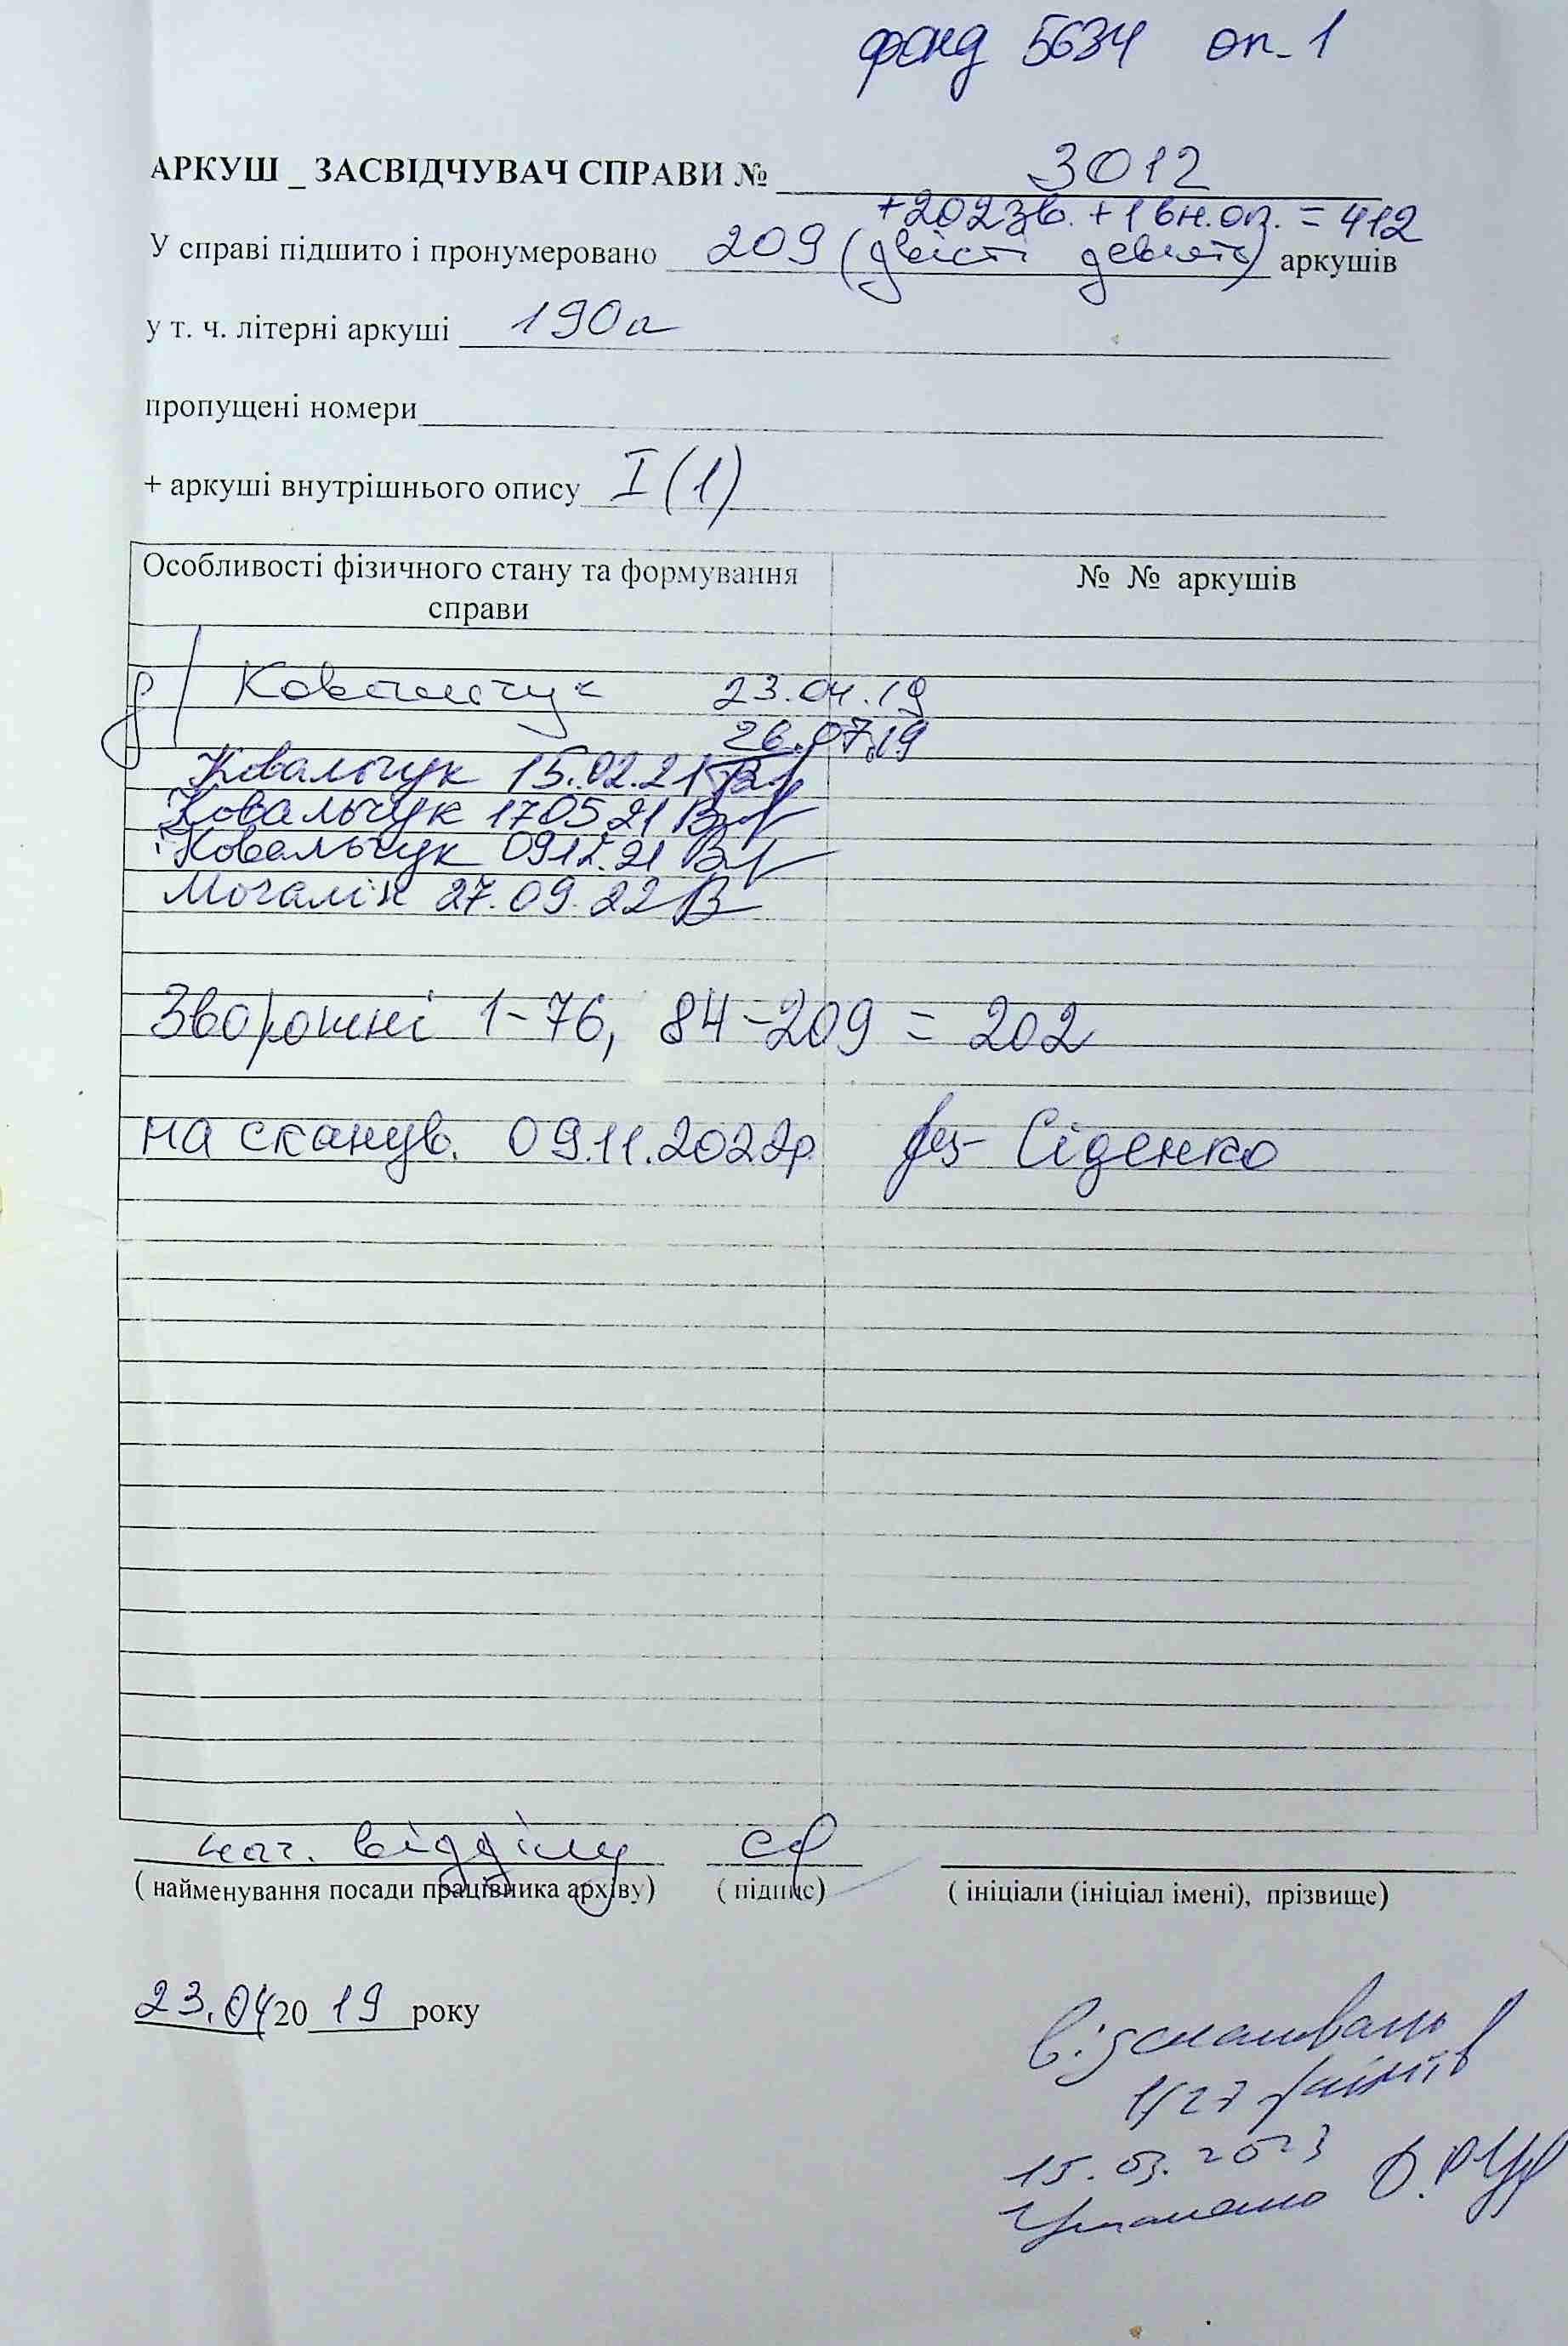 фонд 5634 оп. 1
АРКУШ _ ЗАСВІДЧУВАЧ СПРАВИ № 3012
+202 зв. + 1 вн.оп. = 412
У справі підшито і пронумеровано 209 (двісті девять) аркушів
у т. ч. літерні аркуші 190а
пропущені номери
+ аркуші внутрішнього опису I (1)
Особливості фізичного стану та формування справи
№ № аркушів
Ковальчук 23.04.19
26.07.19
Ковальчук 15.02.21
Ковальчук 17 05 21
Ковальчук 09 12. 21
Мочалін 27.09.22 В
Зворотні 1-76, 84-209 = 202
на сканув. 09.11.2022р Сіденко
нач. відділу
( найменування посади працівника архіву) ( підпис) ( ініціали (ініціал імені), прізвище)
23.04 20 19 року
Відскановано
файлів
15.03.2023